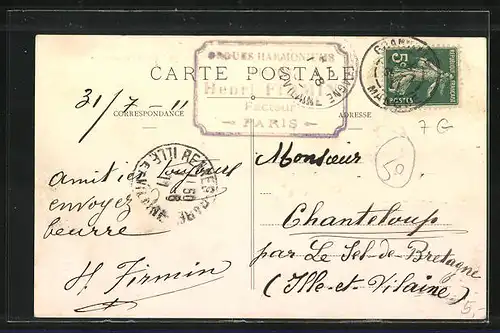 ORGUES HARMONIUMS
Henri
Facteur
PARIS
CARTE POSTALE
5c
POSTES
31/7-11
CORRESPONDANCE
ADRESSE
7G
50
RENNES GARE
ILLE-ET-VILAINE
Monsieur
Amitiés toujours
envoyez
beurre
H. Firmin
Chanteloup
par Le Sel-de-Bretagne
(Ille-et-Vilaine)
5,-